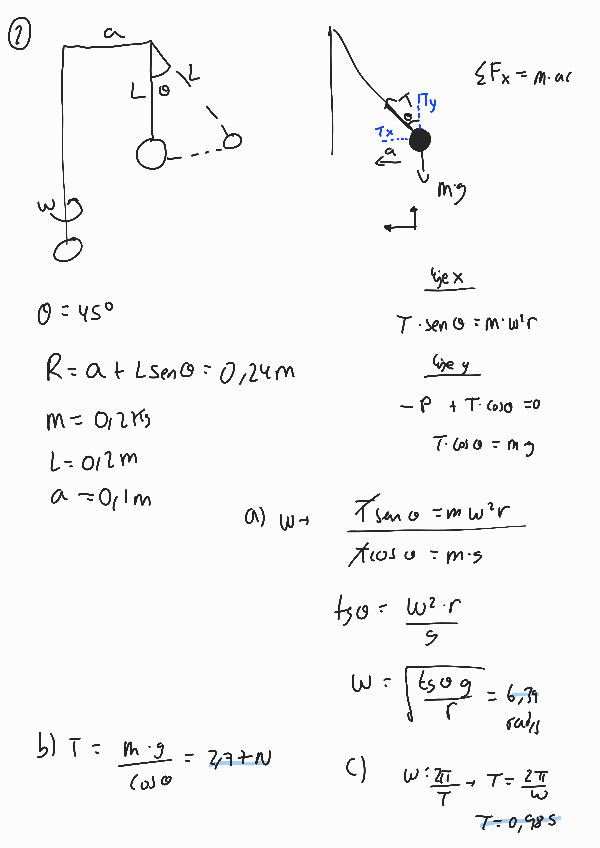 2
a
L θ L
w
T Ty
θ
Tx
a
m·g
ΣFx = m·ac
θ = 45°
R = a + L sen θ = 0,24 m
m = 0,2 Kg
L = 0,2 m
a = 0,1 m
Eje x
T · sen θ = m · w² r
Eje y
- P + T · cos θ = 0
T · cos θ = m g
a) w →
T sen θ = m w² r
T cos θ = m·g
tg θ = w² · r / g
w = √ tg θ g / r = 6,39 rad/s
b) T = m · g / cos θ = 2,77 N
c) w = 2π / T → T = 2π / w
T = 0,98 s